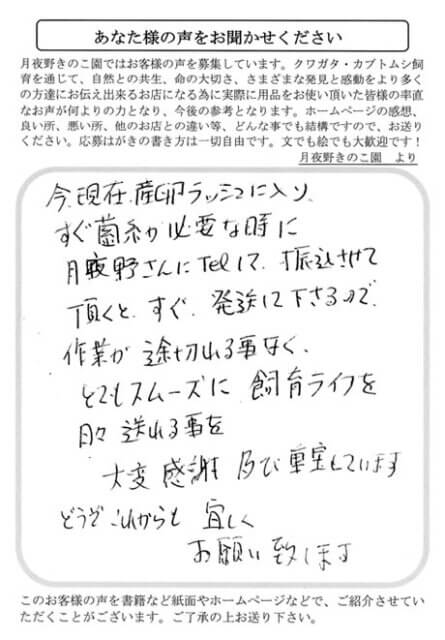 あなた様の声をお聞かせください
月夜野きのこ園ではお客様の声を募集しています。クワガタ・カブトムシ飼
育を通じて、自然との共生、命の大切さ、さまざまな発見と感動をより多く
の方達にお伝え出来るお店になる為に実際に用品をお使い頂いた皆様の率直
なお声が何よりの力となり、今後の参考となります。ホームページの感想、
良い所、悪い所、他のお店との違い等、どんな事でも結構ですので、お送り
ください。応募はがきの書き方は一切自由です。文でも絵でも大歓迎です！
月夜野きのこ園　より
今、現在、産卵ラッシュに入り、
すぐ菌糸が必要な時に
月夜野さんにTelして、振込させて
頂くと、すぐ、発送して下さるので、
作業が途切れる事なく、
とてもスムーズに飼育ライフを
日々送れる事を
大変感謝及び重宝しています
どうぞこれからも宜しく
お願い致します
このお客様の声を書籍など紙面やホームページなどで、ご紹介させてい
ただくことがございます。ご了承の上お送り下さい。